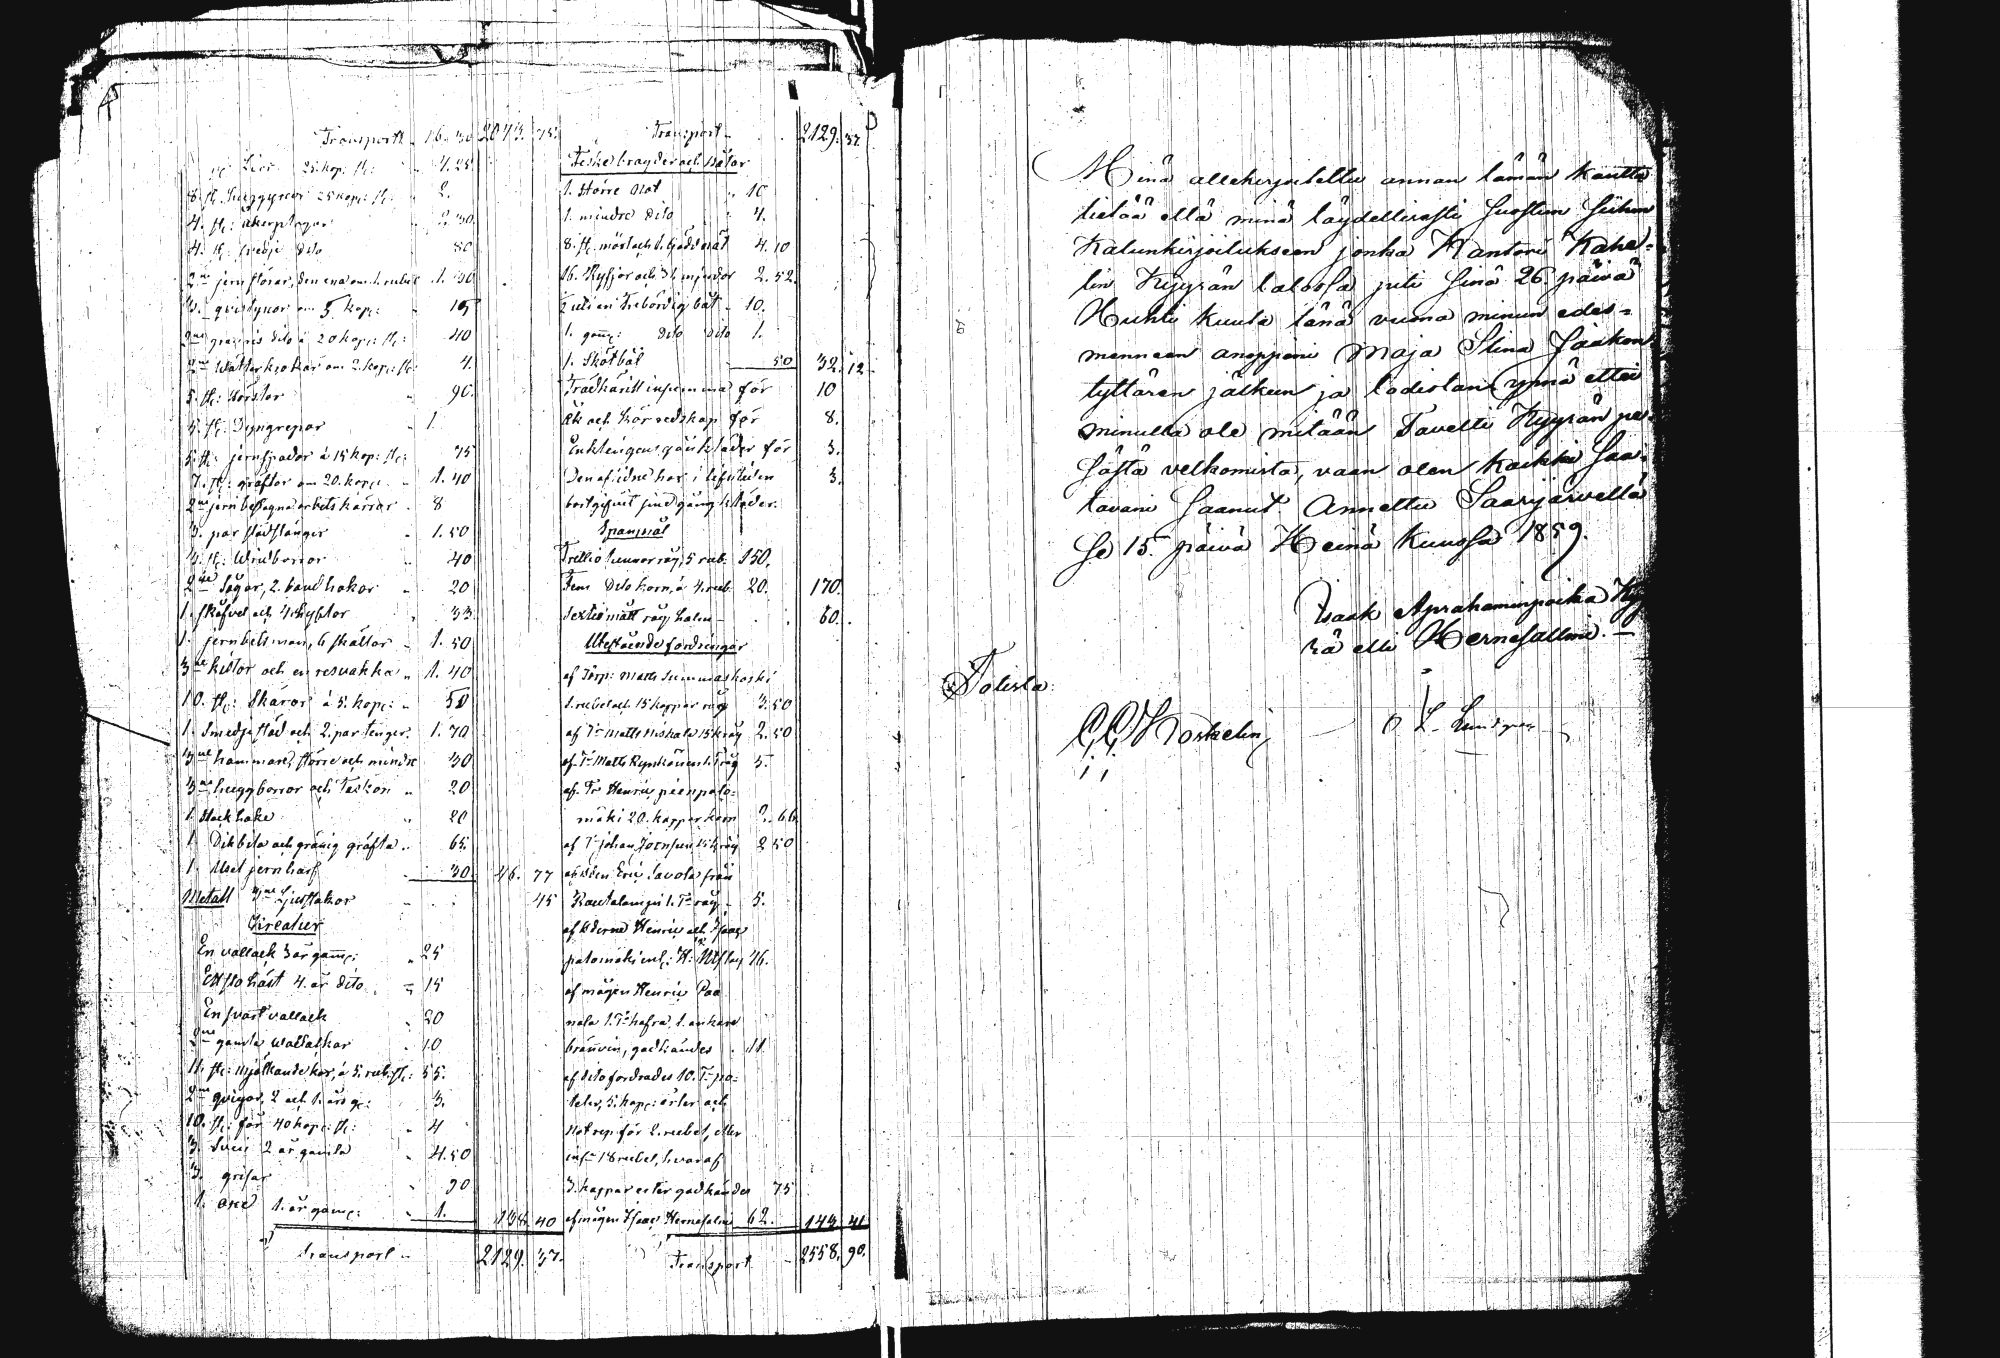 Transport 16. 30 2043. 75.
st: Liar 25 kop: st: 4.25
8. st: huggyxor 25 kop: st: 2.
4. st: åkerplogar 2.30.
4. st: svedje dito 80
2ne jernstörar, den ena om 1. rubel 1. 30
3. qvistyxor om 5 kop: 15
2ne dito à 20 kop: st: 40
2ne Watterkrokar om 2. kop: st: 4.
5. st: 90.
5. st: Dyngrepar 1.
5. st: jernspador à 15 kop: st: 75
7. st: gräftor om 20. kop: 1. 40
2ne jernbeslagna arbets kärror 8
3. par stådstänger 1. 50
3. st: Windborror 40
2ne Sågar, 2. bandhakar 20
1. skåfvel och 4. hyflar 33
1. jernbetsman, 6 skållor 1. 50
3ne kistor och en resvakka 1. 40
10. st: Skäror à 5. kop: 50
1. Smedjestäd och 2. par tänger 1. 70
3ne hammare, större och mindre 30
3ne huggborror och 20
1. Stockhake 20
1. Dikbila och gräfta 65.
1. Usel jernharf 30 46. 77
Metall 3ne ljusstakar 45
Kreatur
En vallack 3 år gam: 25
Ett sto häst 4. år dito 15
En svart vallack 20
2ne gamla Wallackar 10
11. st: mjölkande kor, à 5. rub: st: 55.
2ne qvigor, 2 och 1. års g: 3.
10. st: får 40 kop: st: 4
3. Svin 2 år gamla 4.50
3. grisar 90
1. oxe 1. år gam: 1. 138. 40
Transport 2129. 37.
Transport 2129. 37.
Fiskebragder och båtar
1. större Not 10
1. mindre dito 4.
8. st. mört och 1. gäddnät 4.10
16. Ryssjor och 31. mjerdor 2.52.
Zuti en trebördig båt 10.
1. gam: dito dito 1.
1. Skötbåt 50 32. 12
Trädkärill in summa för 10
Åk och körredskap för 8.
Enklingens gångkläder för 3.
Den aflidne har i lifstiden 3.
bortgifvit sina gångkläder.
Spanmål
Trettio tunnor råg, 5 rub. 150.
Fem dito korn, à 4. rub. 20. 170.
Sextio mått råg halm 60.
Utestående fordringar
af Torp: Matts Summaskoski
1. rubel och 15 kappar råg 3.50
af To Matts Niskala 15 k råg 2.50
af To Matts 1. T råg 5.
af To Henric pienpalo=
mäki 20. kappar korn 2. 66
af To Johan 15 k råg 2 50
af Eric Savola från
Rautalampi 1. T råg 5.
af bderne Henric och Isaac
palomäki enl: K: 16.
af mågen Henric Paa
nala 1. T hafra, 1. ankare
bränvin, godkändes 11
af dito fordrades 10. T po=
teter, 5. kap: ärter och
not rep för 2. rubel, eller
18 rubel, hvaraf
3. kappar erter godkändes 75
af mågen Isaac Hernesalmi 62. 143. 41
Transport 2558. 90.
Minä allekirjoitettu annan tämän kautta
tietää että minä täydellisesti suostun siihen
Kalunkirjoitukseen jonka Kantori Kahe=
lin Kyyrän talossa piti sinä 26. päivä
Huhti kuuta tänä vuonna minun edes=
menneen anoppini Maja Stina Jaakon
tyttären jälkeen ja todistan ynnä ettei
minulla ole mitään Tavetti Kyyrän pe=
sästä velkomista, vaan olen kaikki saa=
tavani saanut. Annettu Saarijärvellä
se 15. päivä Heinä kuussa 1859.
Isaak Aprahaminpoika Kyy
rä elli Hernesallmi. —
Todista:
Koskelin
L. Lundgren